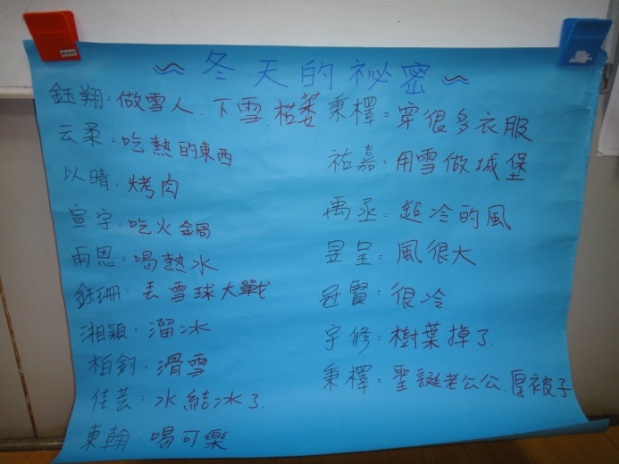 ~冬天的祕密~
鈺翔:做雪人、下雪、枯萎
云柔:吃熱的東西
以晴:烤肉
宣宇:吃火鍋
雨恩:喝熱水
鈺珊:丟雪球大戰
湘穎:溜冰
柏鈞:滑雪
佳芸:水結冰了
東翰:喝可樂
秉檡:穿很多衣服
祐嘉:用雪做城堡
禹丞:超冷的風
昱呈:風很大
冠賢:很冷
宇修:樹葉掉了
秉檡:聖誕老公公、厚被子